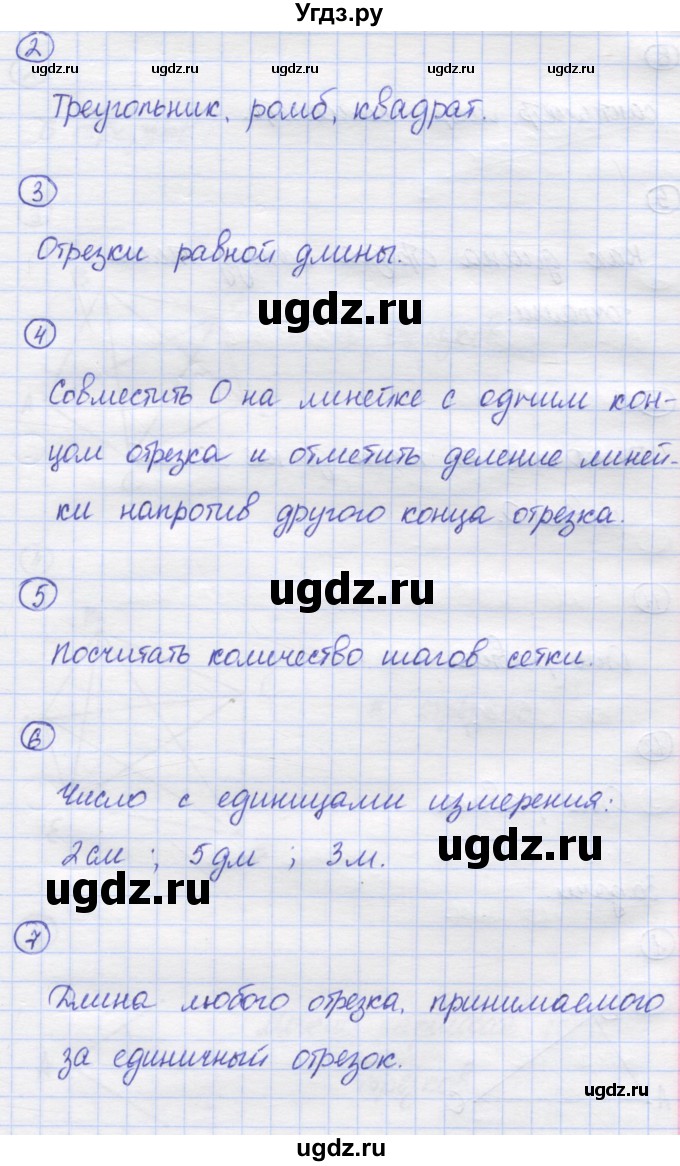 Угдз.ру
2
ugdz.ru ugdz.ru ugdz.ru ugdz.ru ugdz.ru
Треугольник, ромб, квадрат.
3
Отрезки равной длины.
ugdz.ru
4
Совместить 0 на линейке с одним кон-
цом отрезка и отметить деление линей-
ки напротив другого конца отрезка.
ugdz.ru
5
Посчитать количество шагов сетки.
6
Число с единицами измерения:
ugdz.ru
2 см ; 5 дм ; 3 м.
ugdz.ru
7
Длина любого отрезка, принимаемого
за единичный отрезок.
ugdz.ru
ugdz.ru